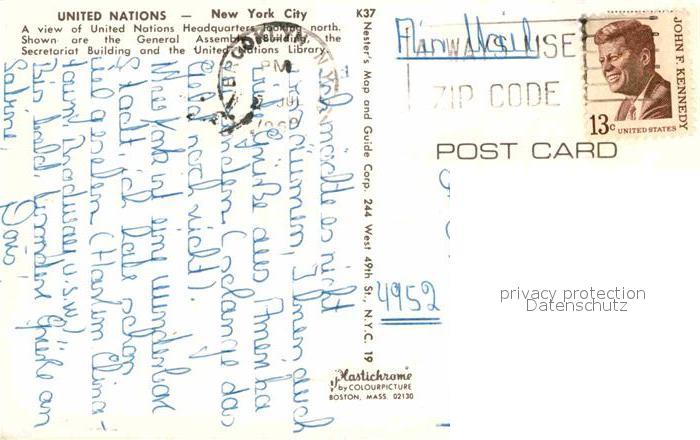 UNITED NATIONS — New York City
A view of United Nations Headquarters looking north.
Shown are the General Assembly Building, the
Secretariat Building and the United Nations Library.
K37
Nester's Map and Guide Corp. 244 West 49th St., N.Y.C. 19
Plastichrome
by COLOURPICTURE
BOSTON, MASS. 02130
Ich möchte es nicht
versäumen, Ihnen auch
Grüße aus Amerika
zu senden (solange das
Geld noch reicht).
New York ist eine wunderbare
Stadt, ich habe schon
viel gesehen (Harlem, China-
town, Broadway u.s.w.)
Bis bald, Grüße an
Sabine,
Doris
BROOKLYN, N.Y.
PM
Air Mail
ALWAYS USE
ZIP CODE
JOHN F. KENNEDY
13c UNITED STATES
POST CARD
4952
privacy protection
Datenschutz